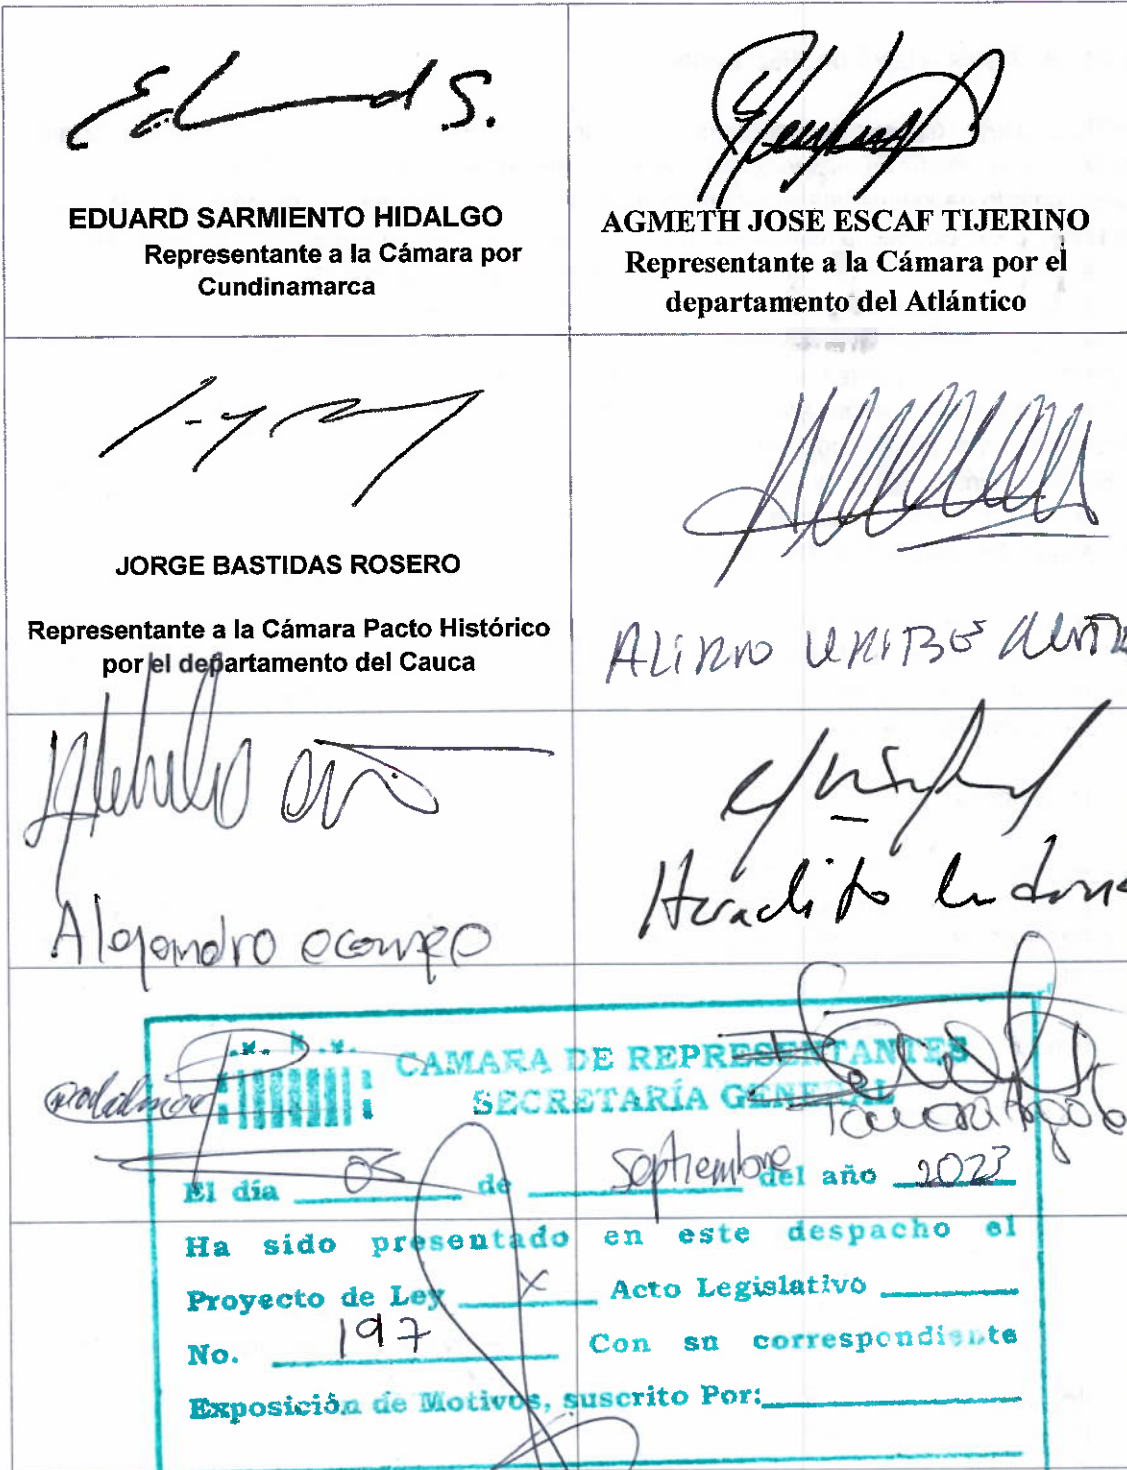 EDUARD SARMIENTO HIDALGO
Representante a la Cámara por
Cundinamarca
AGMETH JOSÉ ESCAF TIJERINO
Representante a la Cámara por el
departamento del Atlántico
JORGE BASTIDAS ROSERO
Representante a la Cámara Pacto Histórico
por el departamento del Cauca
ALIRIO URIBE
Alejandro Ocampo
Heraclito
CAMARA DE REPRESENTANTES
SECRETARÍA GENERAL
El día 05 de Septiembre del año 2023
Ha sido presentado en este despacho el
Proyecto de Ley X Acto Legislativo
No. 197 Con su correspondiente
Exposición de Motivos, suscrito Por: